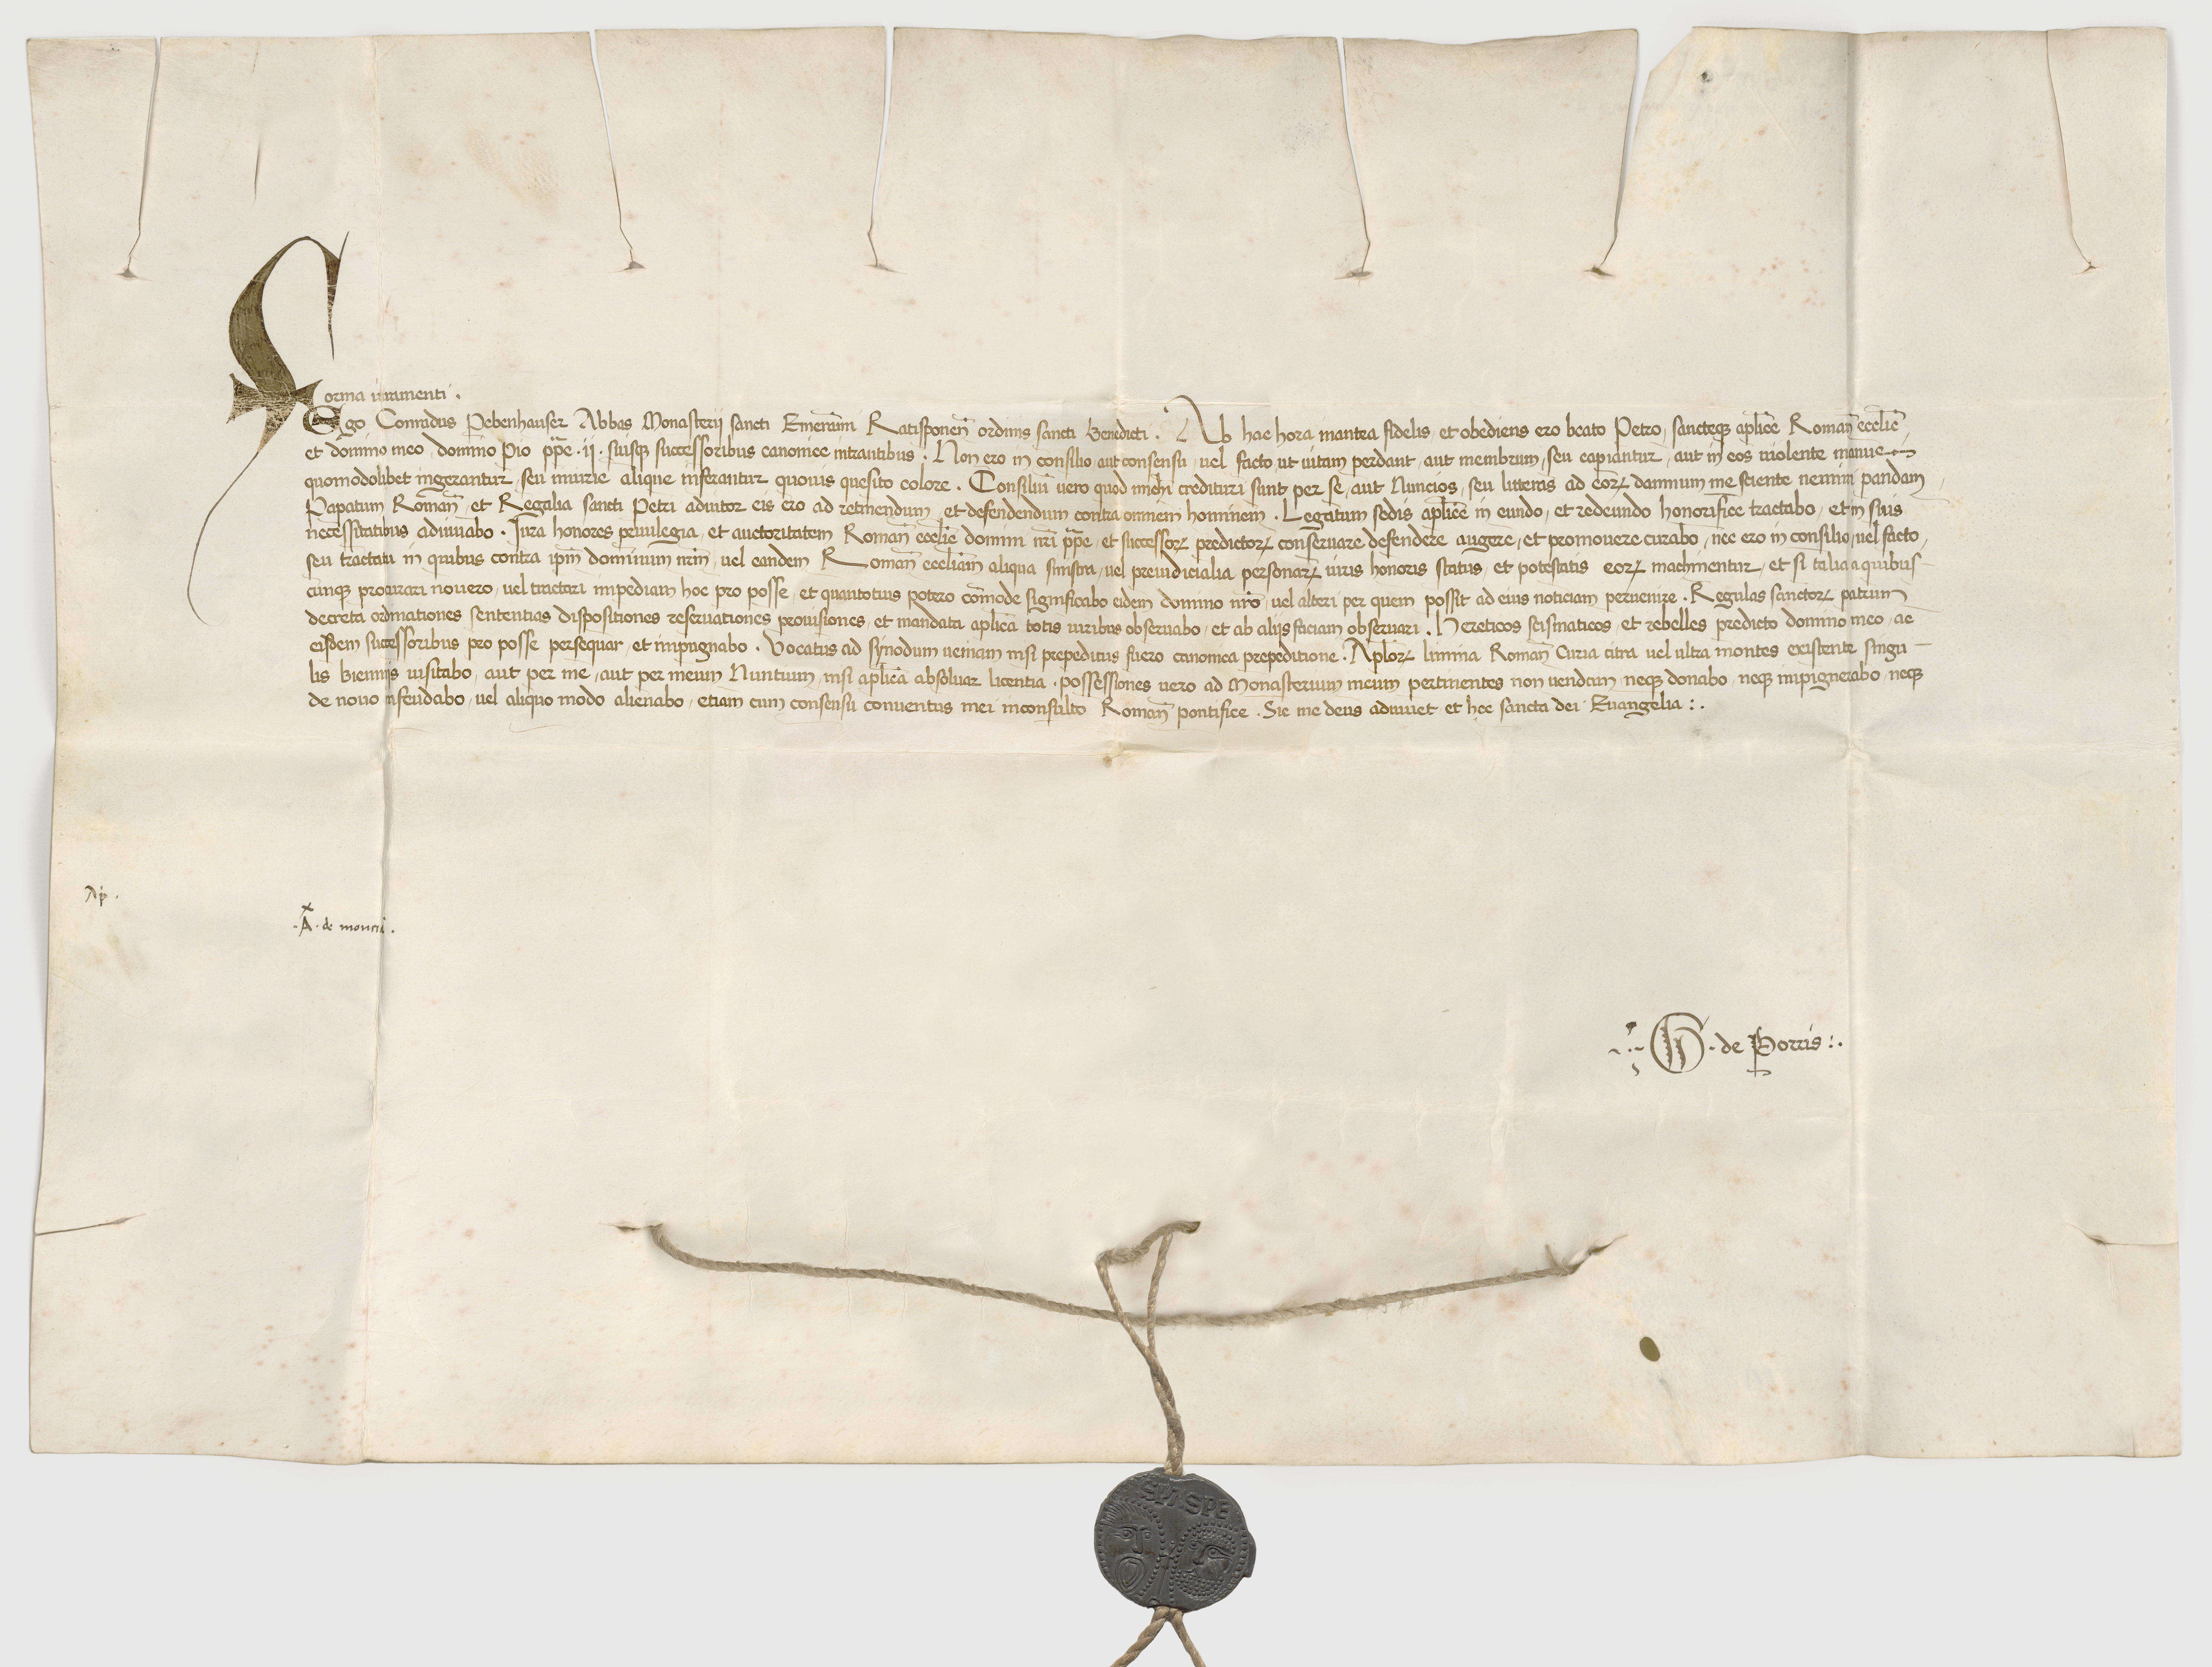 Forma iuramenti .
Ego Conradus Pebenhauser Abbas Monasterij sancti Emerami Ratisponeñ ordinis sancti Benedicti . Ab hac hora inantea fidelis et obediens ero beato Petro sancteqꝫ aplice Romañ ecclie
et domino meo domino Pio ppe .ij. suisqꝫ successoribus canonice intrantibus . Non ero in consilio aut consensu vel facto ut vitam perdant aut membrum seu capiantur aut in eos violente manus
quomodolibet ingerantur seu iniurie alique inferantur quovis quesito colore . Consiliũ vero quod michi credituri sunt per se aut Nuncios seu litteras ad eoꝝ damnum me sciente nemini pandam
Papatum Romañ et Regalia sancti Petri adiutor eis ero ad retinendum et defendendum contra omnem hominem . Legatum sedis aplice in eundo et redeundo honorifice tractabo et in suis
necessitatibus adiuvabo . Iura honores privilegia et auctoritatem Romañ ecclie domini nri ppe et successoꝝ predictoꝝ conservare defendere augere et promovere curabo nec ero in consilio vel facto
seu tractatu in quibus contra ipm dominum nrm vel eandem Romañ eccliam aliqua sinistra vel preiudicialia personaꝝ iuris honoris status et potestatis eoꝝ machinentur et si talia a quibus-
cunqꝫ procurari novero vel tractari impediam hoc pro posse et quantotius potero cõmode significabo eidem domino nro vel alteri per quem possit ad eius noticiam pervenire . Regulas sanctoꝝ patrum
decreta ordinationes sententias dispositiones reservationes provisiones et mandata aplica totis viribus observabo et ab alijs faciam observari . Hereticos scismaticos et rebelles predicto domino meo ac
eisdem successoribus pro posse persequar et impugnabo . Vocatus ad synodum veniam nisi prepeditus fuero canonica prepeditione . Aploꝝ limina Romañ Curia citra vel ultra montes existente singu-
lis bienniis visitabo aut per me aut per meum Nuntium nisi aplica absolvar licentia . possessiones vero ad Monasterium meum pertinentes non vendam neqꝫ donabo neqꝫ impignerabo neqꝫ
de novo infeudabo vel aliquo modo alienabo etiam cum consensu conventus mei inconsulto Romañ pontifice . Sic me deus adiuvet et hec sancta dei Evangelia :.
A . de
G . de Porris :.
SPA SPE